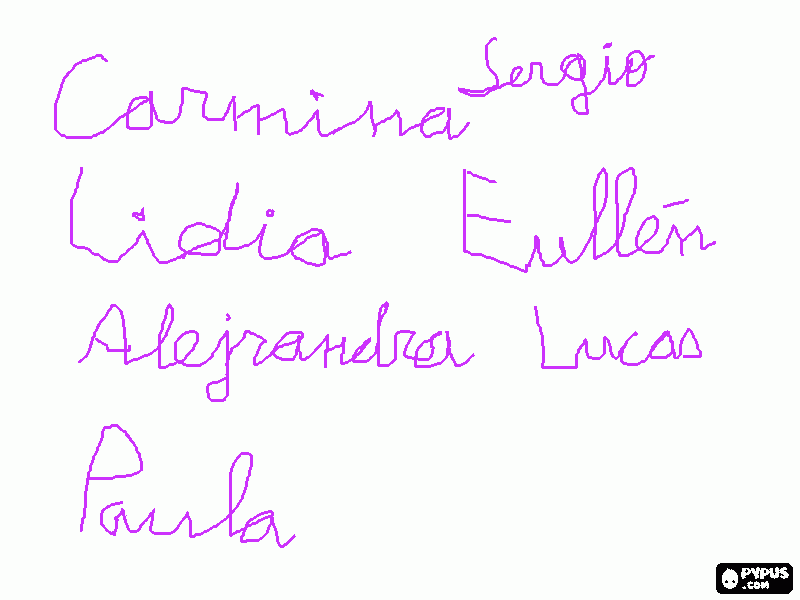 Carmina Sergio
Lidia Eullén
Alejrandra Lucas
Paula
PYPUS
.COM